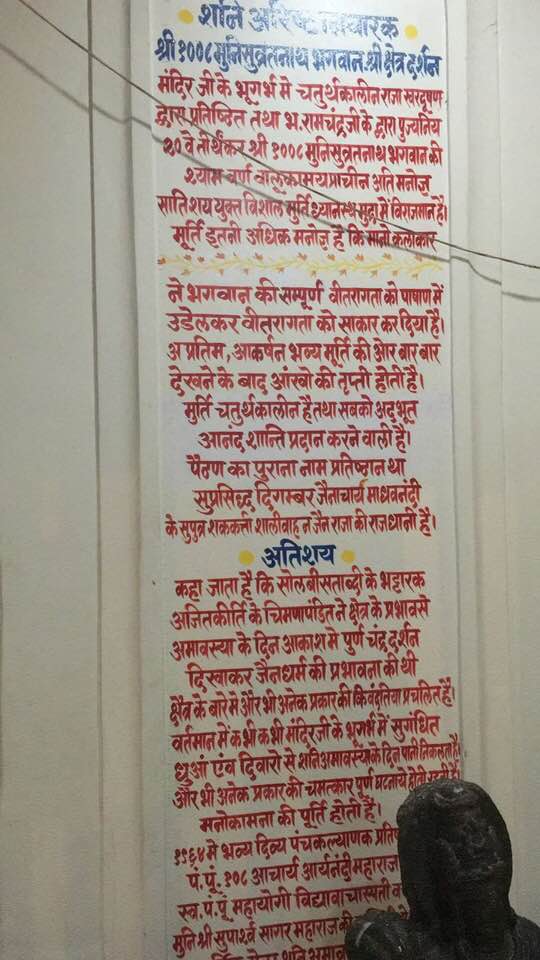 शनि अरिष्ट निवारक
श्री १००८ मुनिसुव्रतनाथ भगवान श्री क्षेत्र दर्शन
मंदिर जी के भूगर्भ मे चतुर्थकालीन राजा खरदूषण
द्वारा प्रतिष्ठित तथा भ. रामचंद्रजी के द्वारा पुज्यनिय
२० वे तीर्थंकर श्री १००८ मुनिसुव्रतनाथ भगवान की
श्याम वर्ण वालूकामय प्राचीन अति मनोज्ञ
सातिशय युक्त विशाल मुर्ति ध्यानस्थ मुद्रा में विराजमान है।
मूर्ति इतनी अधिक मनोज्ञ है कि मानो कलाकार
ने भगवान की सम्पूर्ण वीतरागता को पाषाण में
उडेलकर वीतरागता को साकार कर दिया है।
अप्रतिम, आकर्षन भव्य मूर्ति की ओर बार बार
देखने के बाद आंखो की तृप्ती होती है।
मुर्ति चतुर्थकालीन है तथा सबको अदभूत
आनंद शान्ति प्रदान करने वाली है।
पैठण का पुराना नाम प्रतिष्ठान था
सुप्रसिद्ध दिगम्बर जैनाचार्य माधवनंदी
के सुपुत्र शककर्त्ता शालीवाहन जैन राजा की राजधानी है।
अतिशय
कहा जाता है कि सोलवीसताब्दी के भट्टारक
अजितकीर्ति के चिमणापंडित ने क्षेत्र के प्रभावसे
अमावस्या के दिन आकाश मे पुर्ण चंद्र दर्शन
दिखाकर जैनधर्म की प्रभावना की थी
क्षेत्र के बारे मे और भी अनेक प्रकार की किवंदतिया प्रचलित है।
वर्तमान में कभी कभी मंदिरजी के भूगर्भ में सुगंधित
धुआं एंव दिवारो से शनिअमावस्या के दिन पानी निकलता है
और भी अनेक प्रकार की चमत्कार पूर्ण घटनाये होती रहती है
मनोकामना की पूर्ति होती है।
१९६४ मे भव्य दिव्य पंचकल्याणक
प. पू. १०८ आचार्य आर्यनंदी महाराज
स्व. प. पू. महायोगी विद्यावाचस्पती
मुनि श्री सुपार्श्व सागर महाराज की
शनि अमाव